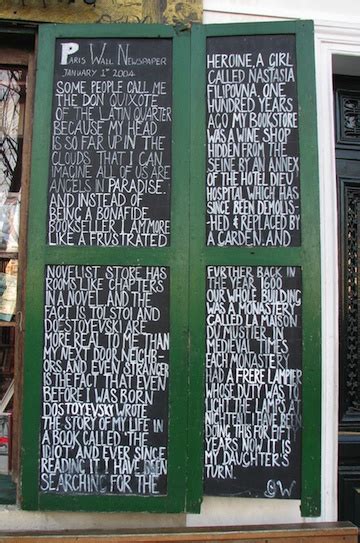 PARIS WALL NEWSPAPER
JANUARY 1ST 2004
SOME PEOPLE CALL ME
THE DON QUIXOTE
OF THE LATIN QUARTER
BECAUSE MY HEAD
IS SO FAR UP IN THE
CLOUDS THAT I CAN
IMAGINE ALL OF US ARE
ANGELS IN PARADISE.
AND INSTEAD OF
BEING A BONAFIDE
BOOKSELLER I AM MORE
LIKE A FRUSTRATED
NOVELIST STORE HAS
ROOMS LIKE CHAPTERS
IN A NOVEL AND THE
FACT IS TOLSTOI AND
DOSTOYEVSKI ARE
MORE REAL TO ME THAN
MY NEXT DOOR NEIGHB-
ORS, AND EVEN STRANGER
IS THE FACT THAT EVEN
BEFORE I WAS BORN
DOSTOYEVSKY WROTE
THE STORY OF MY LIFE IN
A BOOK CALLED 'THE
IDIOT' AND EVER SINCE
READING IT I HAVE BEEN
SEARCHING FOR THE
HEROINE, A GIRL
CALLED NASTASIA
FILIPOVNA. ONE
HUNDRED YEARS
AGO MY BOOKSTORE
WAS A WINE SHOP
HIDDEN FROM THE
SEINE BY AN ANNEX
OF THE HOTEL DIEU
HOSPITAL WHICH HAS
SINCE BEEN DEMOLIS-
HED & REPLACED BY
A GARDEN. AND
FURTHER BACK IN
THE YEAR 1600
OUR WHOLE BUILDING
WAS A MONASTERY
CALLED 'LA MAISON
DU MUSTIER'. IN
MEDIEVAL TIMES
EACH MONASTERY
HAD A FRERE LAMPIER
WHOSE DUTY WAS TO
LIGHT THE LAMPS AT
NIGHTFALL. I HAVE BEEN
DOING THIS FOR FIFTY
YEARS NOW IT IS
MY DAUGHTER'S
TURN.
GW